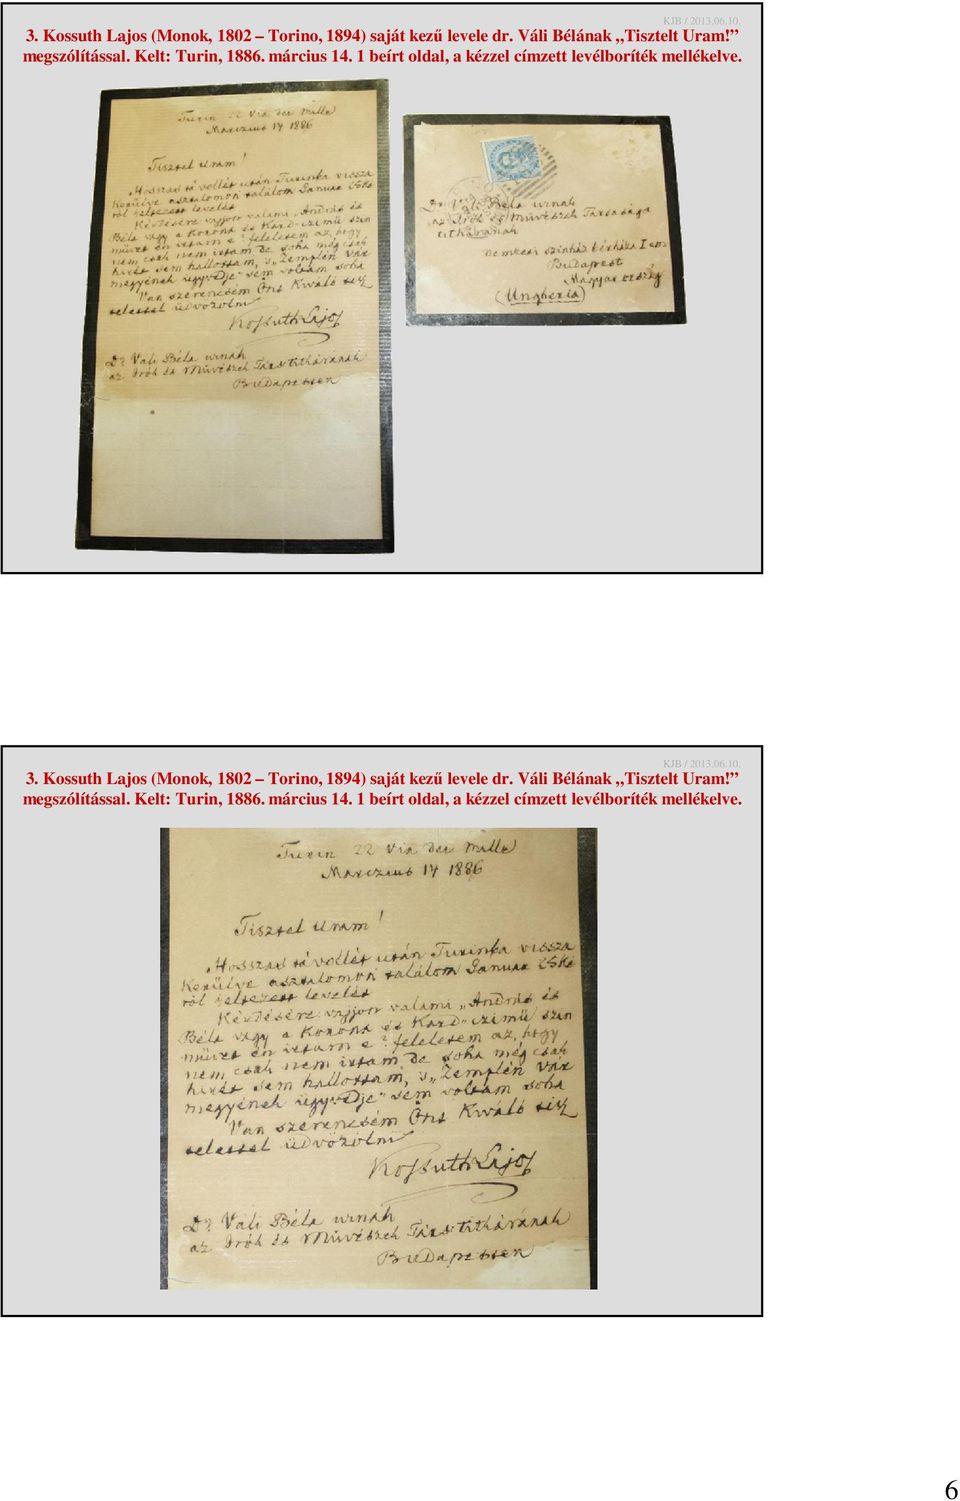 KJB / 2013.06.10.
3. Kossuth Lajos (Monok, 1802 – Torino, 1894) saját kezű levele dr. Váli Bélának „Tisztelt Uram!”
megszólítással. Kelt: Turin, 1886. március 14. 1 beírt oldal, a kézzel címzett levélboríték mellékelve.
Turin 22 Via dei Mille
Marczius 14 1886
Tisztel Uram!
Hosszas távollét után Turinba vissza
kerülve asztalomon találom Januar 25ké
ről keltezett levelét
Kérdésére vajjon valami „András és
Béla vagy a Korona és Kard” czimű szin
művet én irtam e? feleletem az, hogy
nem csak nem irtam de soha még csak
hirét sem hallottam, s „Zemplén vár
megyének ügyvédje” sem voltam soha
Van szerencsém Önt kiváló tisz
telettel üdvözölni
Kossuth Lajos
Dr Váli Béla urnak
az Irók és Művészek Társ titkárának
Budapesten
Dr. Váli Béla urnak
az Irók és Művészek Társasága
titkárának
nemzeti szinház bérháza I em
Budapest
Magyarország
(Ungheria)
KJB / 2013.06.10.
3. Kossuth Lajos (Monok, 1802 – Torino, 1894) saját kezű levele dr. Váli Bélának „Tisztelt Uram!”
megszólítással. Kelt: Turin, 1886. március 14. 1 beírt oldal, a kézzel címzett levélboríték mellékelve.
Turin 22 Via dei Mille
Marczius 14 1886
Tisztel Uram!
Hosszas távollét után Turinba vissza
kerülve asztalomon találom Januar 25ké
ről keltezett levelét
Kérdésére vajjon valami „András és
Béla vagy a Korona és Kard” czimű szin
művet én irtam e? feleletem az, hogy
nem csak nem irtam de soha még csak
hirét sem hallottam, s „Zemplén vár
megyének ügyvédje” sem voltam soha
Van szerencsém Önt kiváló tisz
telettel üdvözölni
Kossuth Lajos
Dr Váli Béla urnak
az Irók és Művészek Társ titkárának
Budapesten
6